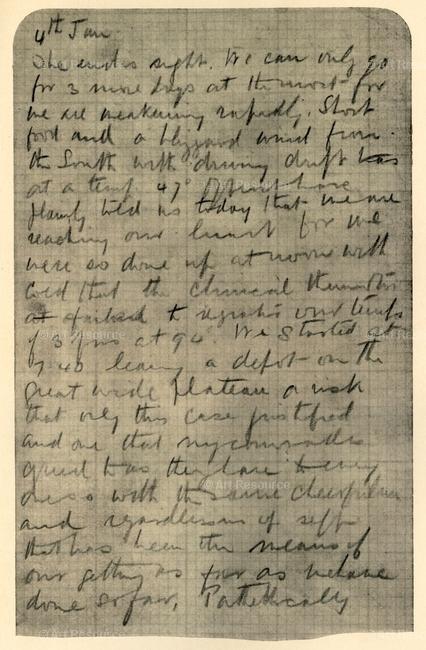 4th Jan
The end is sight. We can only go
for 3 more days at the most for
we are weakening rapidly. Short
food and a blizzard wind from
the South with driving drift has
at a temp 47° of frost have
plainly told us today that we are
reaching our limit for we
were so done up at noon with
cold that the clinical thermometer
failed to register our temps
of 3 of us at 94° We started at
7.40 leaving a depot on the
great wide plateau a risk
that only this case justified
and one that my comrades
agreed to as they have to every
one so with the same cheerfulness
and regardlessness of self
that has been the means of
our getting as far as we have
done so far, Pathetically
© Art Resource